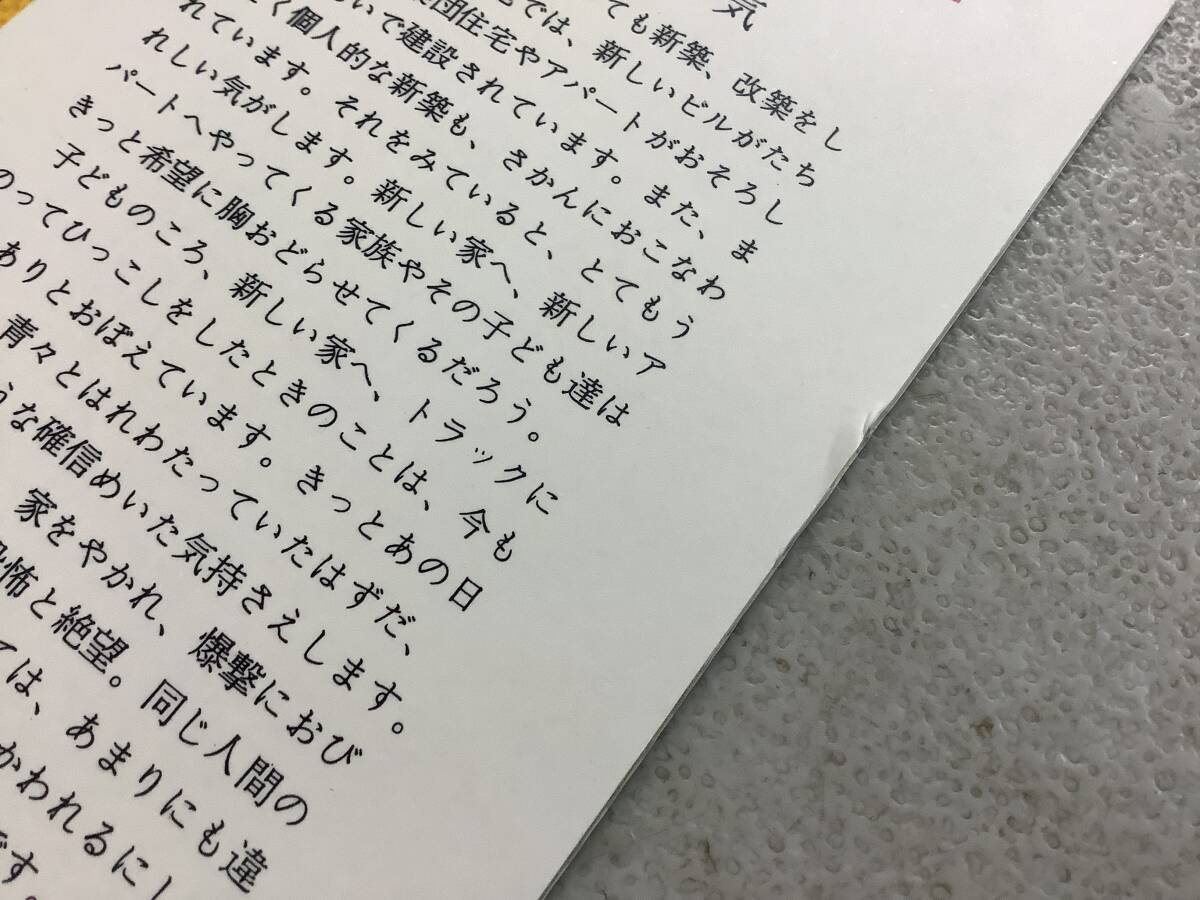 気
ても新築、改築をし
では、新しいビルがたち
団住宅やアパートがおそろし
いで建設されています。また、ま
く個人的な新築も、さかんにおこなわ
れています。それをみていると、とてもう
れしい気がします。新しい家へ、新しいア
パートへやってくる家族やその子ども達は
きっと希望に胸おどらせてくるだろう。
子どものころ、新しい家へ、トラックに
のってひっこしをしたときのことは、今も
ありとおぼえています。きっとあの日
青々とはれわたっていたはずだ、
うな確信めいた気持さえします。
家をやかれ、爆撃におび
怖と絶望。同じ人間の
ては、あまりにも違
かわれるにし
です。